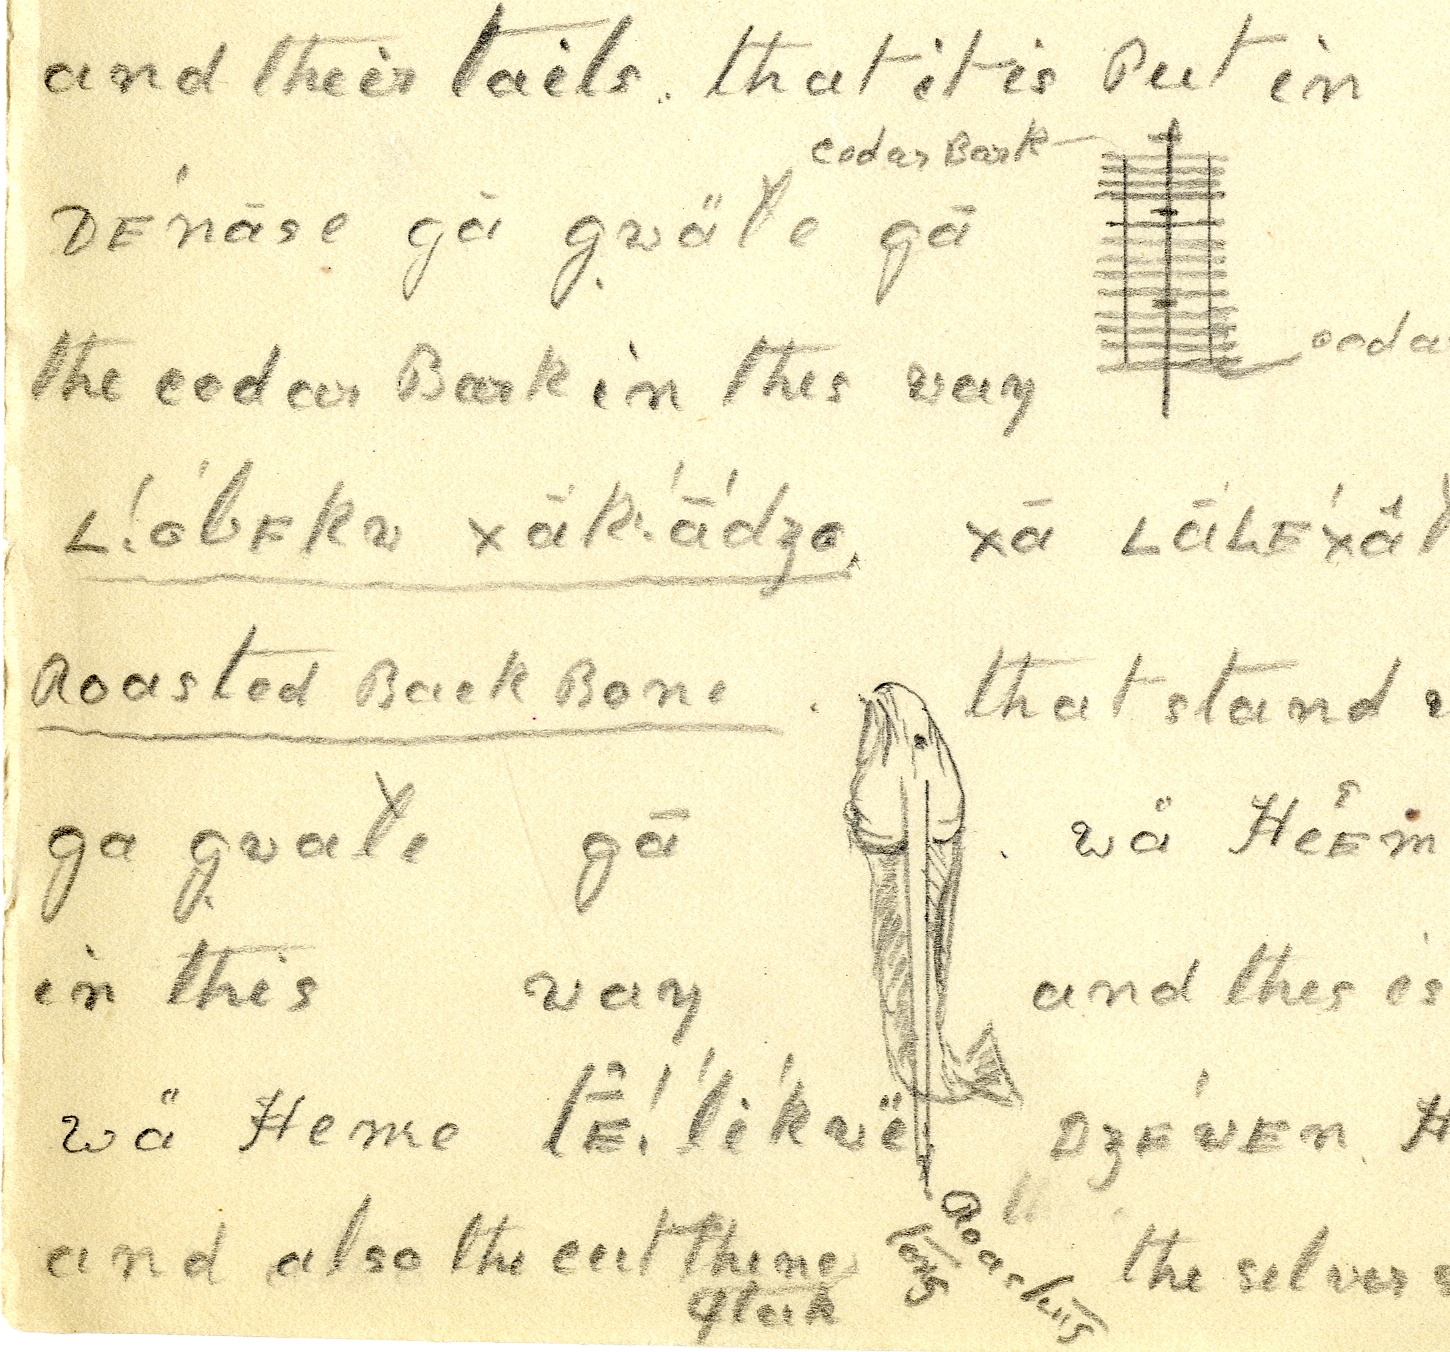 and their tails. that it is Put in
cedar Bark
DEʹnāse gā gwäłe gā
ceda
the cedar Bark in this way
L!ōbEkw xāk!ādzo, xā LāLEʹxâ
Roasted Back Bone. that stand
ga gwałe gā wä Hêem
in this way and this is
wä Heme DzEʹwEn H
and also the cut thing the selver
Roasting
Tongs